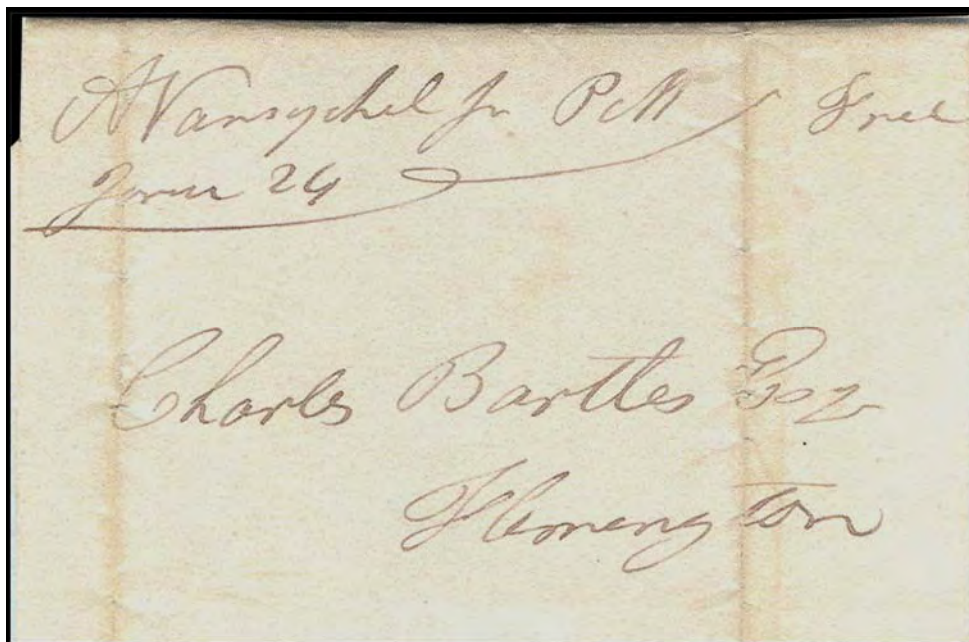 A Vansyckel Jr PM Free
24
Charles Bartles Esq
Flemington